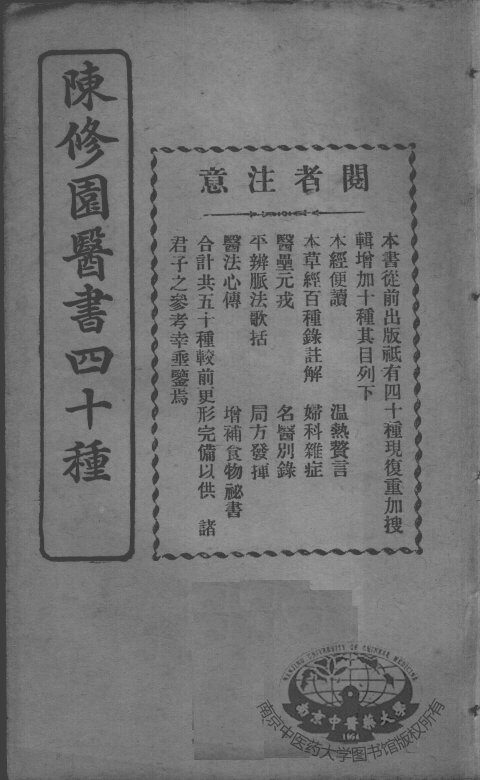 陳修園醫書四十種
閱者注意
本書從前出版祗有四十種現復重加搜
輯增加十種其目列下
本經便讀 温熱贅言
本草經百種錄註解 婦科雜症
醫壘元戎 名醫別錄
平辨脈法歌括 局方發揮
醫法心傳 增補食物祕書
合計共五十種較前更形完備以供 諸
君子之參考幸垂鑒焉
NANJING UNIVERSITY OF CHINESE MEDICINE
南京中醫藥大學
1954
南京中医药大学图书馆版权所有